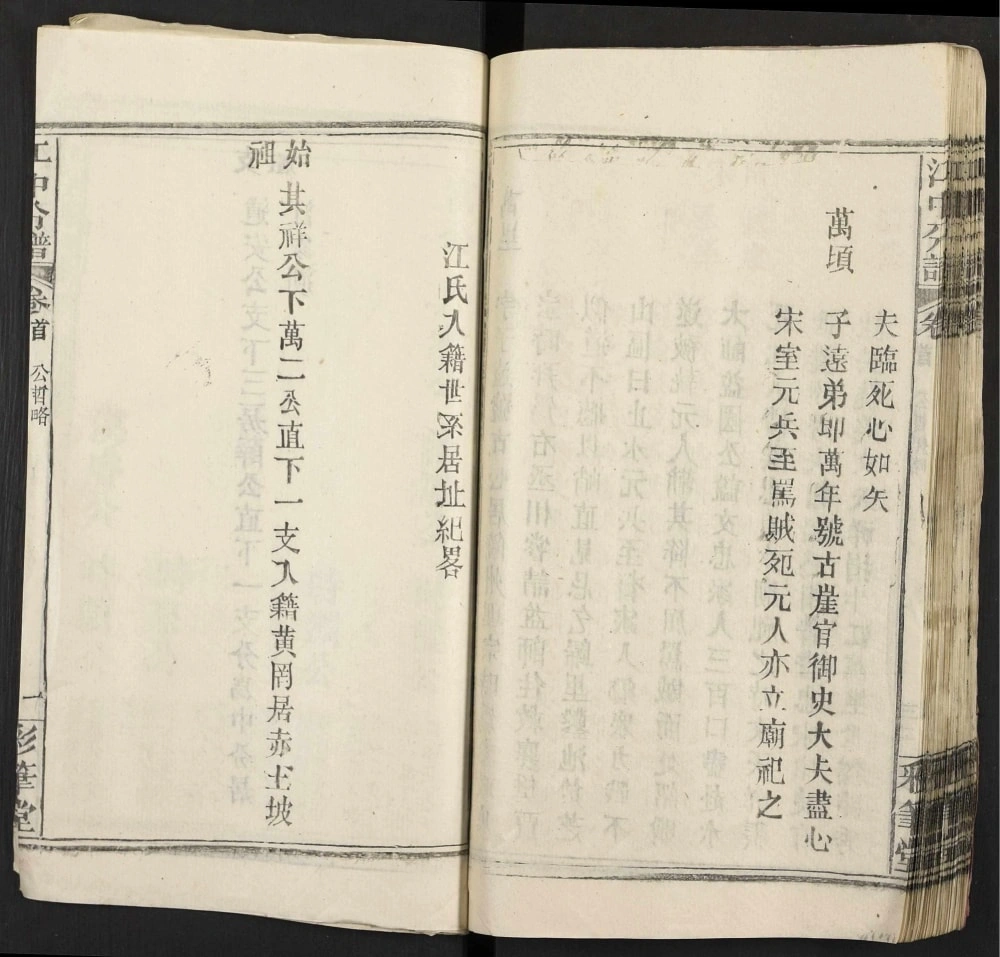 夫臨死心如矢
萬頃 子遠弟即萬年號古崖官御史大夫盡心
宋室元兵至罵賊死元人亦立廟祀之
彩筆堂
江氏入籍世系居址紀畧
始祖 其祥公下萬二公直下一支入籍黄岡居赤土坡
卷首 公哲略 一 彩筆堂